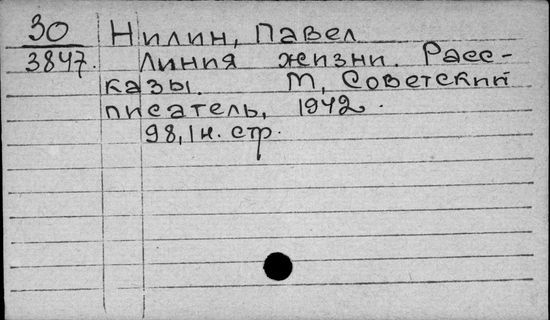 30 Нилин, Павел
3847. Линия жизни. Расс-
казы. М, Советский
писатель, 1942.
98, 1 н. стр.